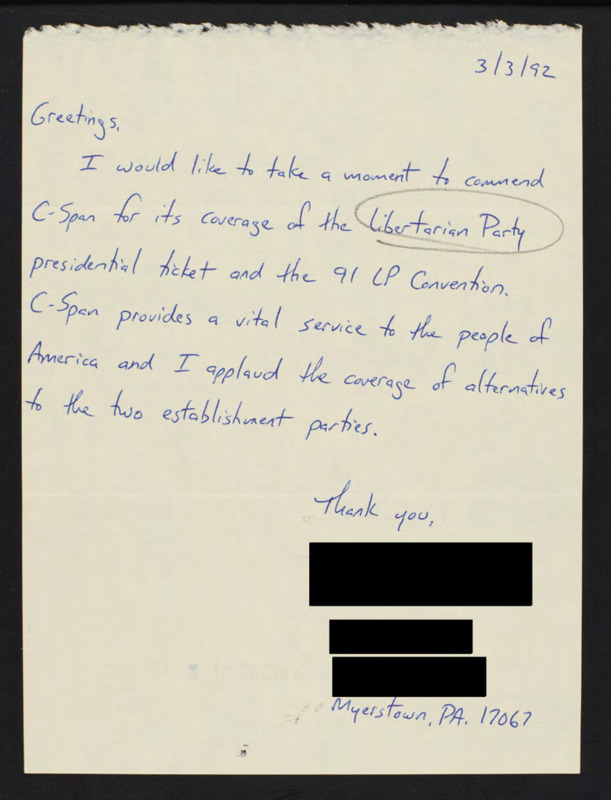 3/3/92
Greetings,
I would like to take a moment to commend
C-Span for its coverage of the Libertarian Party
presidential ticket and the 91 LP Convention.
C-Span provides a vital service to the people of
America and I applaud the coverage of alternatives
to the two establishment parties.
Thank you,
Myerstown, PA. 17067